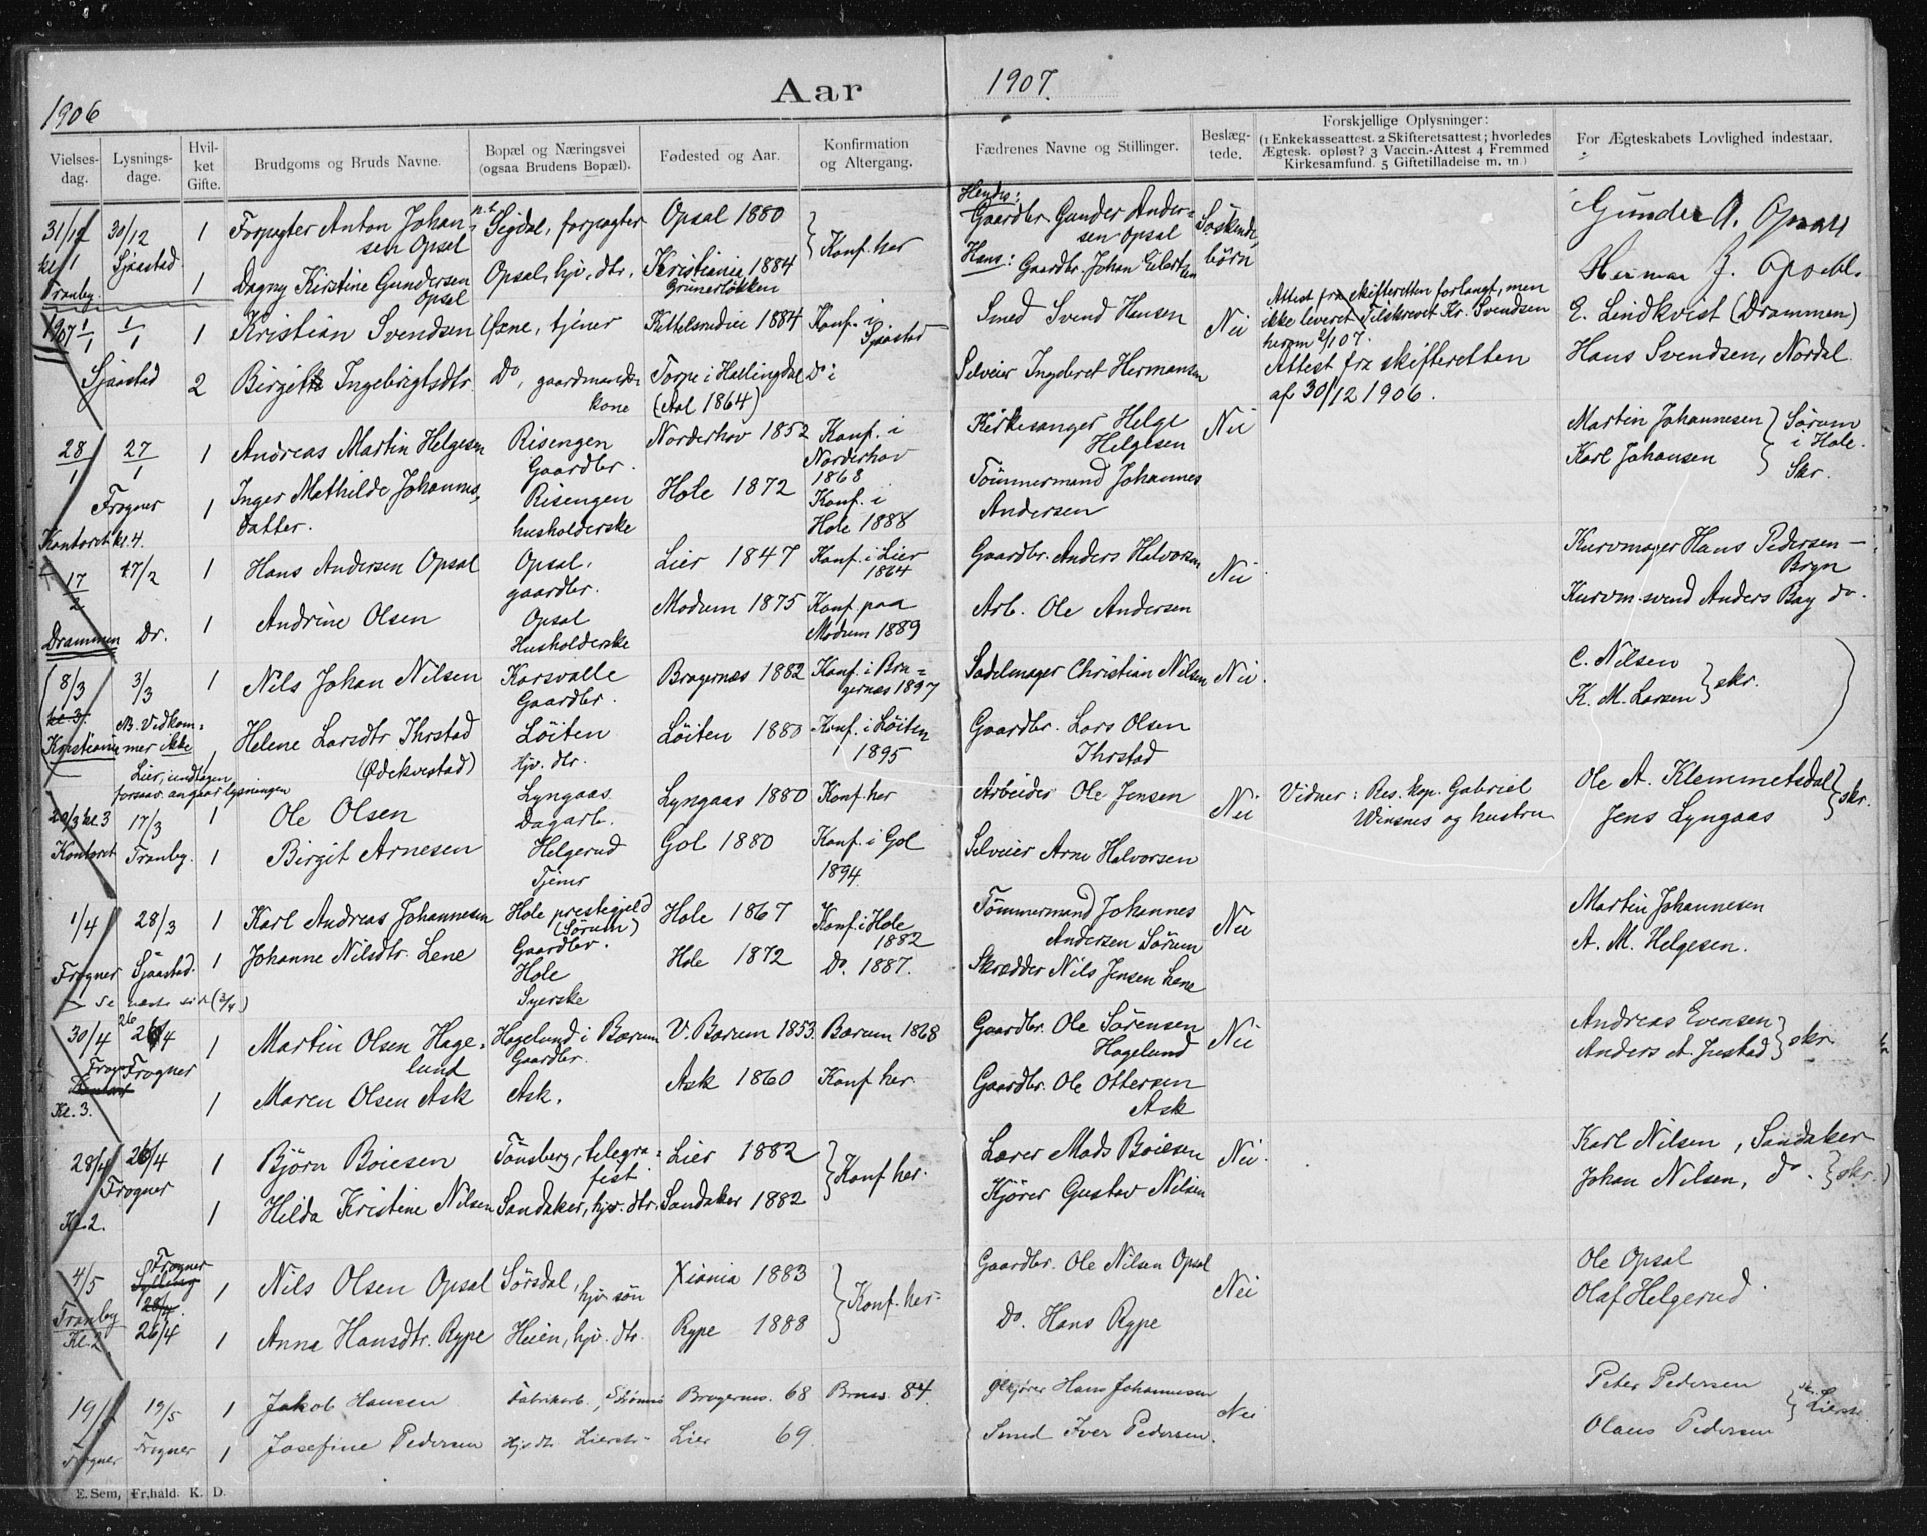 1906
Aar 1907.
Vielses-dag. Lysnings-dage. Hvil-ket Gifte. Brudgoms og Bruds Navne. Bopæl og Næringsvei (ogsaa Brudens Bopæl). Fødested og Aar. Konfirmation og Altergang. Fædrenes Navne og Stillinger. Beslæg-tede. Forskjellige Oplysninger: (1 Enkekasseattest. 2 Skifteretsattest; hvorledes Ægtesk. opløst? 3 Vaccin.-Attest 4 Fremmed Kirkesamfund. 5 Giftetilladelse m. m.) For Ægteskabets Lovlighed indestaar.
31/12 30/12 1 Forpagter Anton Johan- Sigdal, forpagter Opsal 1880 Hendes: Gaardbr. Gunder Ander- Søskende Gunder A. Opsal
kl. 1 Sjaastad sen Opsal } Konf. her sen Opsal børn
Tranby. 1 Dagny Kirstine Gundersen Opsal, hjv. dtr. Kristiania 1884 Hans: Gaardbr. Johan Eilertsen
Opsal Grünerløkken
1907 1/1 1/1 1 Kristian Svendsen Øxne, tjener Kittelsrudeie 1884 Konf. i Sjaastad Smed Svend Hansen Nei Attest fra skifteretten forlangt, men E. Lindkvist (Drammen)
ikke leveret. Tilskrevet Kr. Svendsen
herom 5/1 07.
Sjaastad 2 Birgit Ingebrigtsdtr. Do, gaardmands kone Torpe i Hallingdal Do i Selveier Ingebret Hermansen Attest fra skifteretten Hans Svendsen, Nordal
(Aal 1864) af 30/12 1906.
28/1 27/1 1 Andreas Martin Helgesen Risengen Norderhov 1852 Konf. i Kirkesanger Helge Nei Martin Johannesen } Sørum
Gaardbr. Norderhov Helgesen Karl Johansen } i Hole.
1868 Skr.
Frogner 1 Inger Mathilde Johannes- Risengen Hole 1872 Konf. i Tømmermand Johannes
datter. husholderske Hole 1888 Andersen
Kontoret kl. 4.
17/2 17/2 1 Hans Andersen Opsal Opsal, Lier 1847 Konf. i Lier Gaardbr. Anders Halvorsen Nei Kurvmager Hans Pedersen —
gaardbr. 1864 Bryn
1 Andrine Olsen Opsal Modum 1875 Konf. paa Arb. Ole Andersen Kurvm.svend Anders Bay do.
Drammen Dr. Husholderske Modum 1889
8/3 3/3 1 Nils Johan Nilsen Korsvalle Bragernæs 1882 Konf. i Bra- Sadelmager Christian Nilsen Nei. C. Nilsen
kl. 3. Gaardbr. gernæs 1897 K. M. Larsen } skr.
NB. Vedkom-
Kristiania mer ikke 1 Helene Larsdtr Ihrstad Løiten Løiten 1880 Konf. i Løiten Gaardbr. Lars Olsen
Lier, undtagen (Ødekvestad) hjv. dtr. 1895 Ihrstad
forsaav. angaar lysningen
20/3 kl. 3 17/3 1 Ole Olsen Lyngaas Lyngaas 1880 Konf. her Arbeider Ole Jensen Nei Vidner: Res. kap. Gabriel Ole A. Klemmetsdal } skr.
Dagarb. Winsnes og hustru Jens Lyngaas
Kontoret Tranby. 1 Birgit Arnesen Helgerud Gol 1880 Konf. i Gol Selveier Arne Halvorsen
Tjener 1894
1/4 28/3 1 Karl Andreas Johannesen Hole prestegjeld Hole 1867 Konf. i Hole Tømmermand Johannes Nei Martin Johannesen
(Sørum) 1882 Andersen Sørum
Gaardbr.
Frogner Sjaastad. 1 Johanne Nilsdtr. Lene Hole Hole 1872 Do. 1887. Skrædder Nils Jensen Lene A. M. Helgesen.
Syerske
Se næste side (3/4)
30/4 26/4 1 Martin Olsen Hage- Hagelund i Bærum V. Bærum 1853. Bærum 1868 Gaardbr. Ole Sørensen Nei Andreas Evensen } skr.
lund Gaardbr. Hagelund Anders A. Justad
Frogner Frogner
Kontoret
Kl. 3. 1 Maren Olsen Ask Ask. Ask 1860 Konf. her. Gaardbr. Ole Ottersen
Ask
28/4 26/4 1 Bjørn Boiesen Tønsberg, telegra- Lier 1882 } Konf. her. Lærer Mads Boiesen Nei. Karl Nilsen, Sandaker
fist
Frogner
Kl. 2. 1 Hilda Kristine Nilsen Sandaker, hjv. dtr. Sandaker 1882 Kjører Gustav Nilsen Johan Nilsen, do. } skr.
4/5 Frogner 1 Nils Olsen Opsal Sørsdal, hjv. søn Xiania 1883 } Konf. her. Gaardbr. Ole Nilsen Opsal Nei Ole Opsal
Sylling
28/4.
Tranby
Kl. 2 26/4 1 Anna Hansdtr. Rype Heien, hjv. dtr. Rype 1888 Do. Hans Rype Olaf Helgerud
19/5 19/5 1 Jakob Hansen Fabrikarb., Strømsø Bragernæs. 68 Brnæs. 84. Hans Johannesen Nei Peter Pedersen
Frogner Frogner 1 Josefine Pedersen Hjv. dtr. Lierstr. Lier 69. Smed Iver Pedersen. Olaus Pedersen } Lierstr.
E. Sem, Fr.hald. K. D.